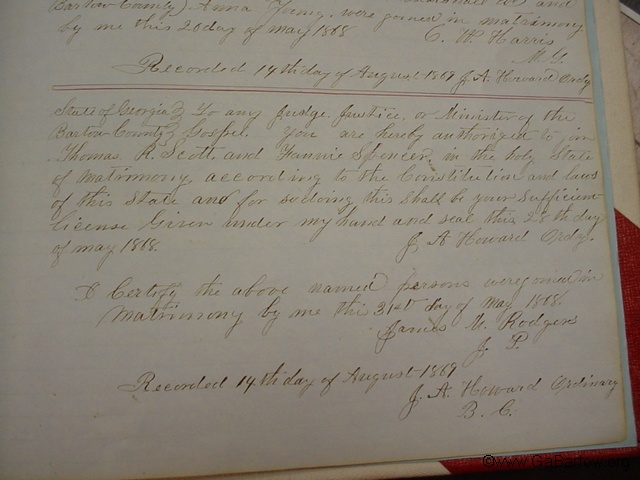 Bartow County) Anna Young, were joined in matrimony
by me this 20 day of May 1868
C. W. Harris
M. G.
Recorded 14th day of August 1869 J. A. Howard Ordy
State of Georgia } To any Judge, Justice, or Minister of the
Bartow County } Gospel. You are hereby authorized to join
Thomas R. Scott and Fannie Spencer in the holy State
of Matrimony, according to the Constitution and laws
of this State and for so doing this shall be your Sufficient
license Given under my hand and seal this 28th day
of May 1868. J. A Howard Ordy.
I Certify the above named persons were joined in
Matrimony by me this 31st day of May 1868.
James M. Rodgers
J. P.
Recorded 14th day of August 1869
J. A. Howard Ordinary
B. C.